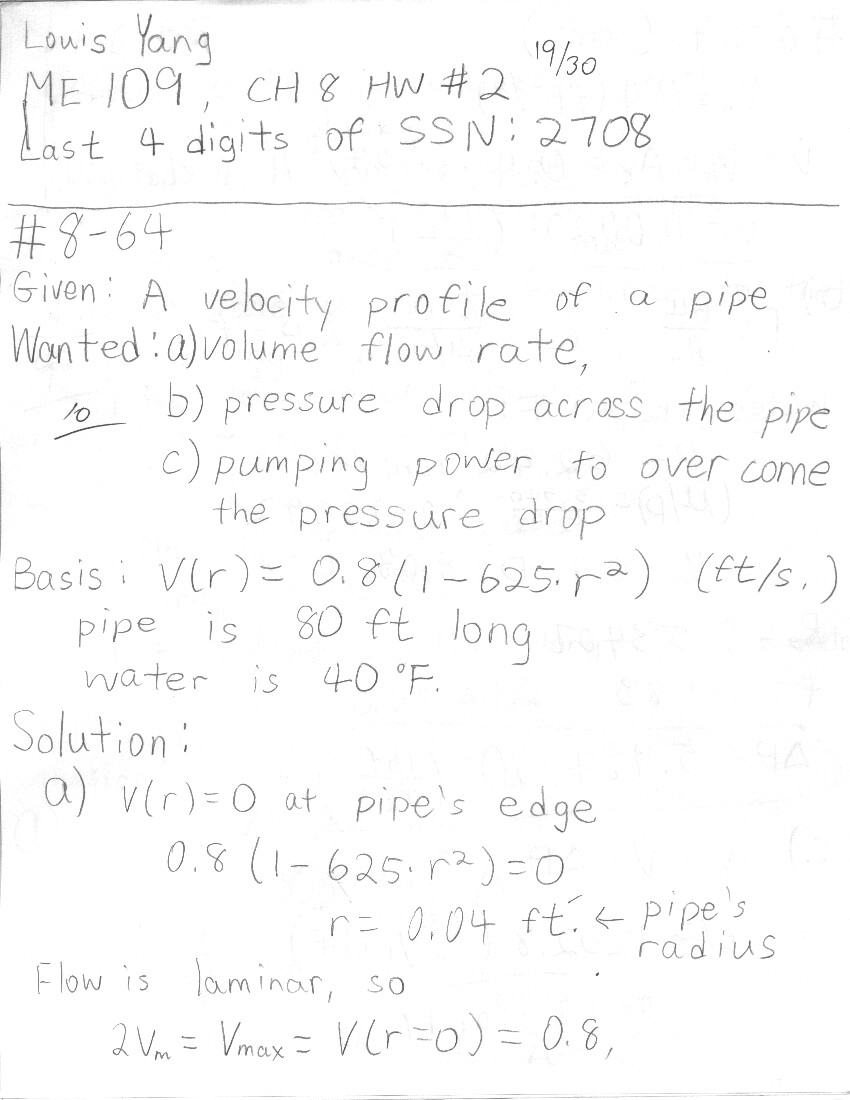 Louis Yang
19/30
ME 109, CH 8 HW #2
Last 4 digits of SSN: 2708
#8-64
Given: A velocity profile of a pipe
Wanted: a) volume flow rate,
10
b) pressure drop across the pipe
c) pumping power to over come
the pressure drop
Basis: V(r) = 0.8(1-625·r²) (ft/s.)
pipe is 80 ft long
water is 40 °F.
Solution:
a) V(r)=0 at pipe's edge
0.8 (1-625·r²)=0
r= 0.04 ft. ← pipe's
radius
Flow is laminar, so
2Vm = Vmax = V(r=0) = 0.8,